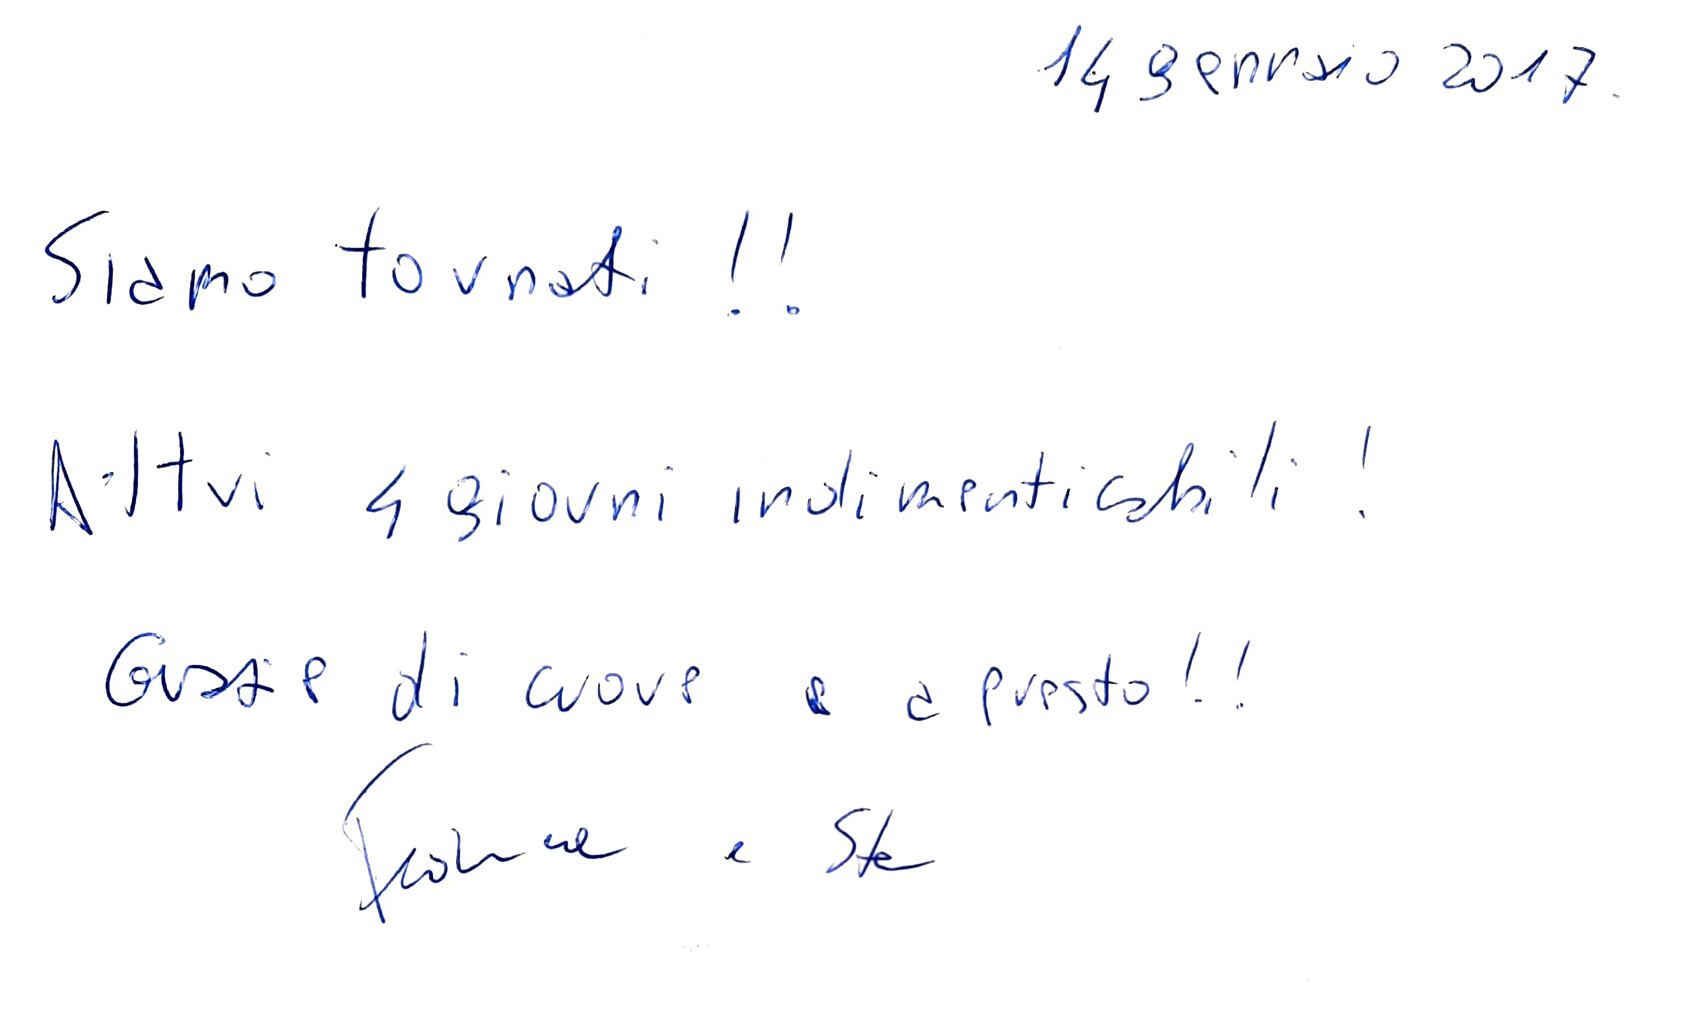 14 gennaio 2017.
Siamo tornati !!
Altri 4 giorni indimenticabili !
Grazie di cuore e a presto !!
e Ste